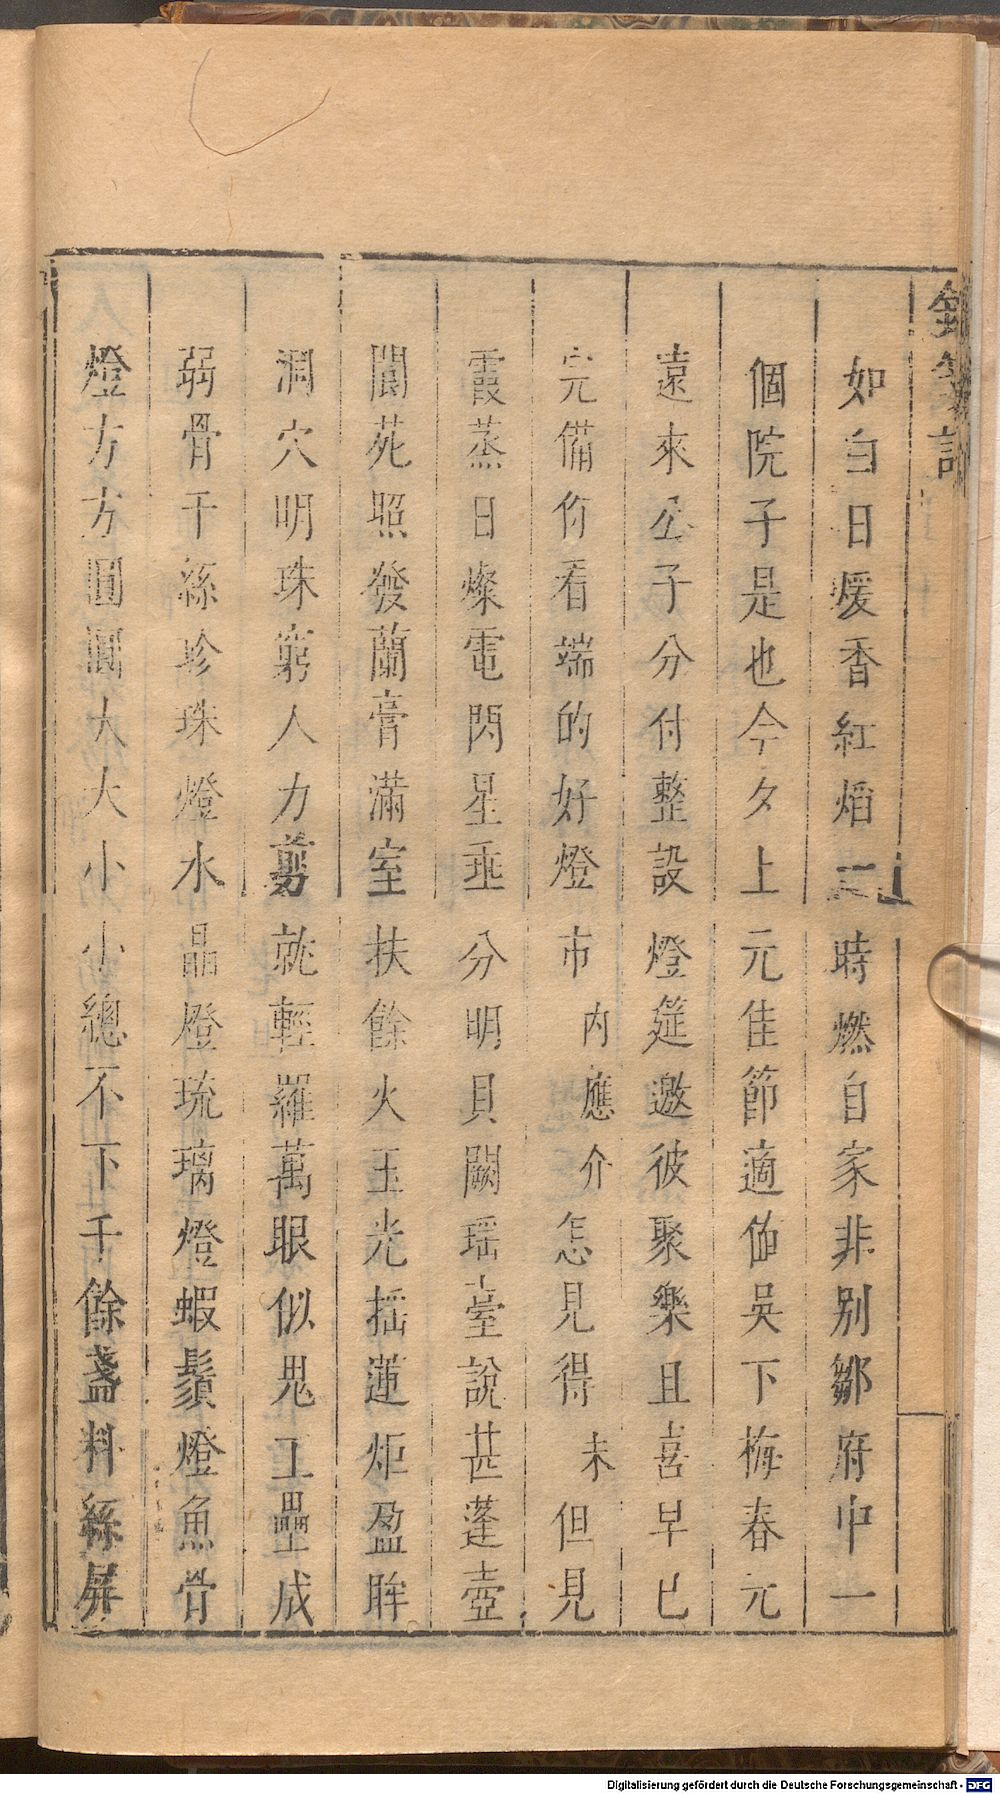 如白日煖香紅焰二時燃自家非別鄒府中一
個院子是也今夕上元佳節適値吳下梅春元
遠來公子分付整設燈筵邀彼聚樂且喜早已
完備你看端的好燈市內應介怎見得末但見
霞蒸日燦電閃星垂分明貝闕瑶臺說甚蓬壺
閬苑照發蘭膏滿室扶餘火玉光揺蓮炬盈眸
洞穴明珠窮人力剪就輕羅萬眼似鬼工壘成
弱骨千絲珍珠燈水晶燈琉璃燈蝦鬚燈魚骨
燈方方圓圓大大小小總不下千餘盞料絲屏
Digitalisierung gefördert durch die Deutsche Forschungsgemeinschaft - DFG